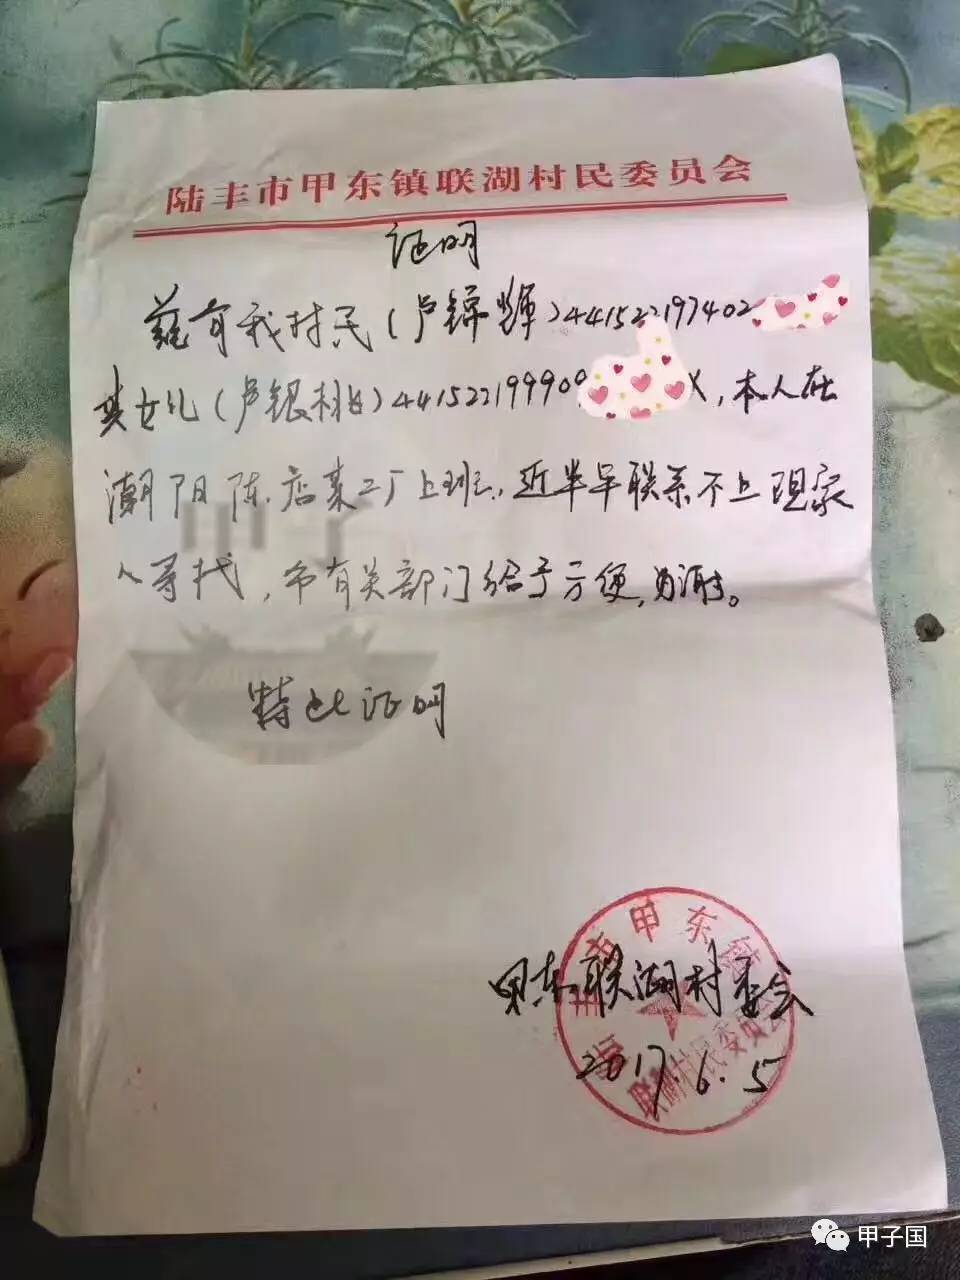 陆丰市甲东镇联湖村民委员会
证明
兹有我村民(卢锦辉)441522197402
其女儿(卢银桃)44152219990 X,本人在
潮阳陈店某工厂上班,近半年联系不上现家
人寻找,希有关部门给予方便,为谢。
特此证明
甲东联湖村委会
2017.6.5
联湖村民委员会
甲子国